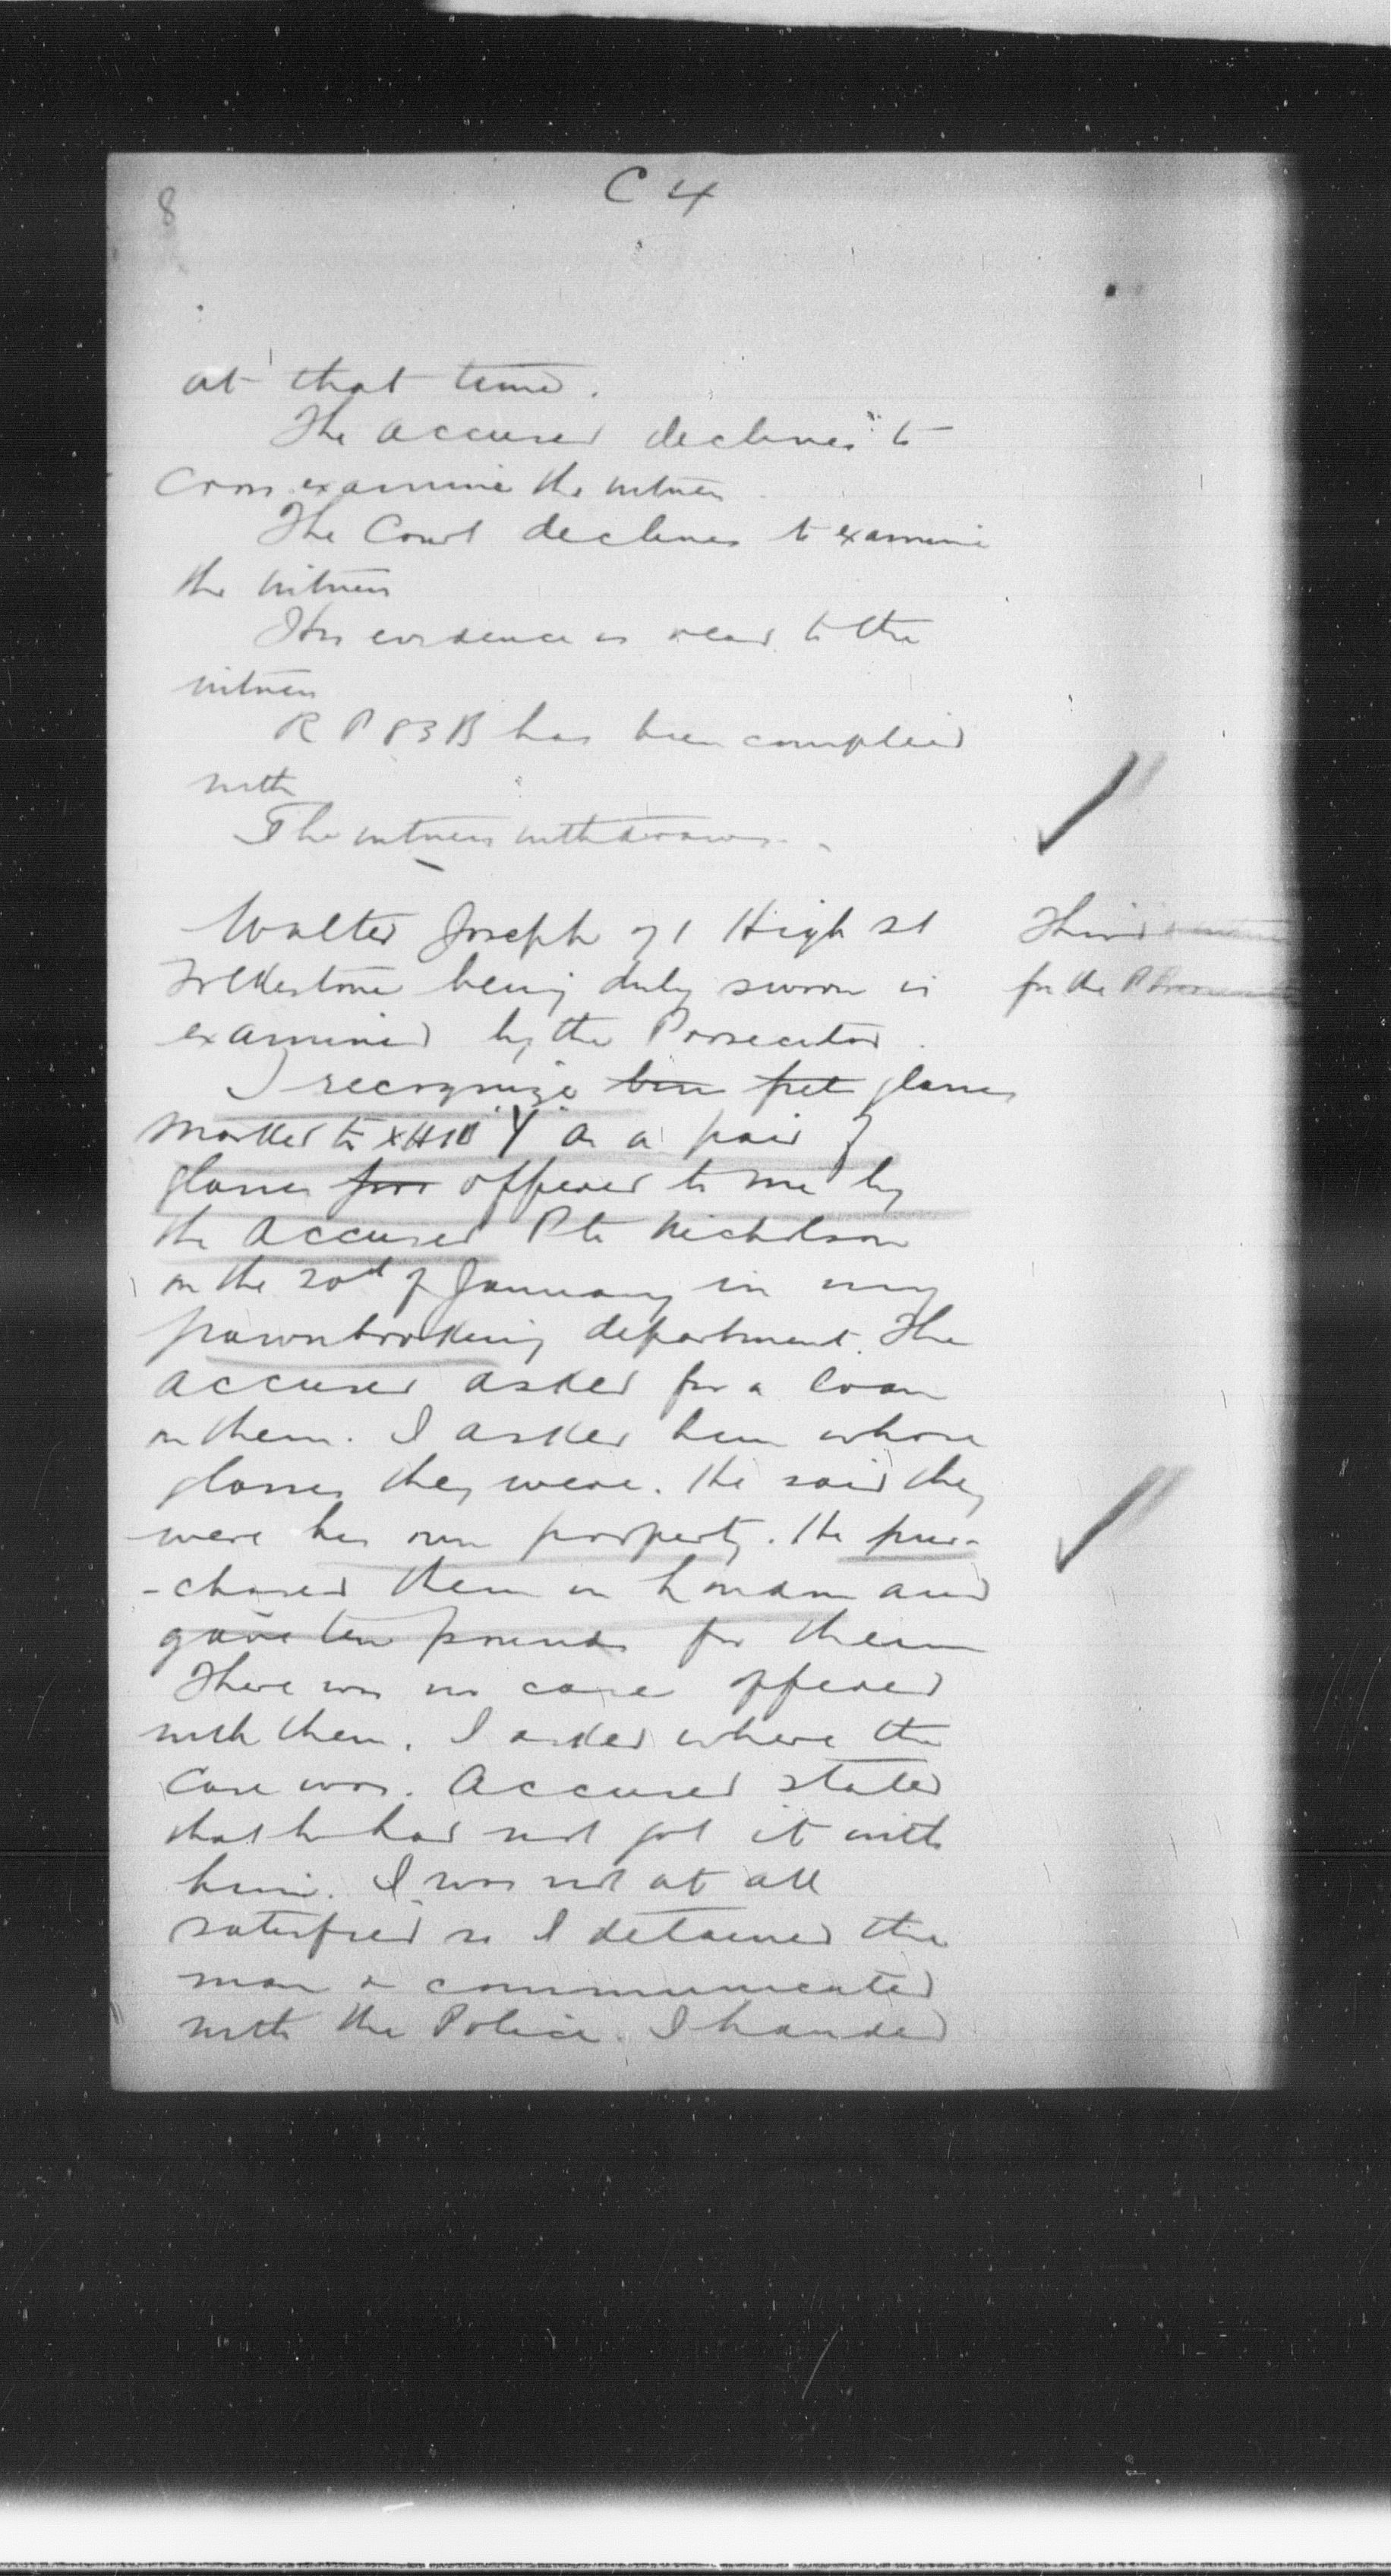 8
C 4
at that time.
The accused declines to
cross examine the witness.
The Court declines to examine
the witness
His evidence is read to the
witness
R P 83 B has been complied
with
The witness withdraws.
Walter Joseph of 1 High St
Third witness
Folkestone being duly sworn is
for the Prosecution
examined by the Prosecutor.
I recognize glasses
marked Y as a pair of
glasses offered to me by
the accused Pte Nicholson
on the 20th of January in my
pawnbroking department. The
accused asked for a loan
on them. I asked him whose
glasses they were. He said they
were his own property. He pur-
-chased them in London and
gave ten pounds for them
There was no case offered
with them. I asked where the
case was. Accused stated
that he had not got it with
him. I was not at all
satisfied so I detained the
man & communicated
with the Police. I handed